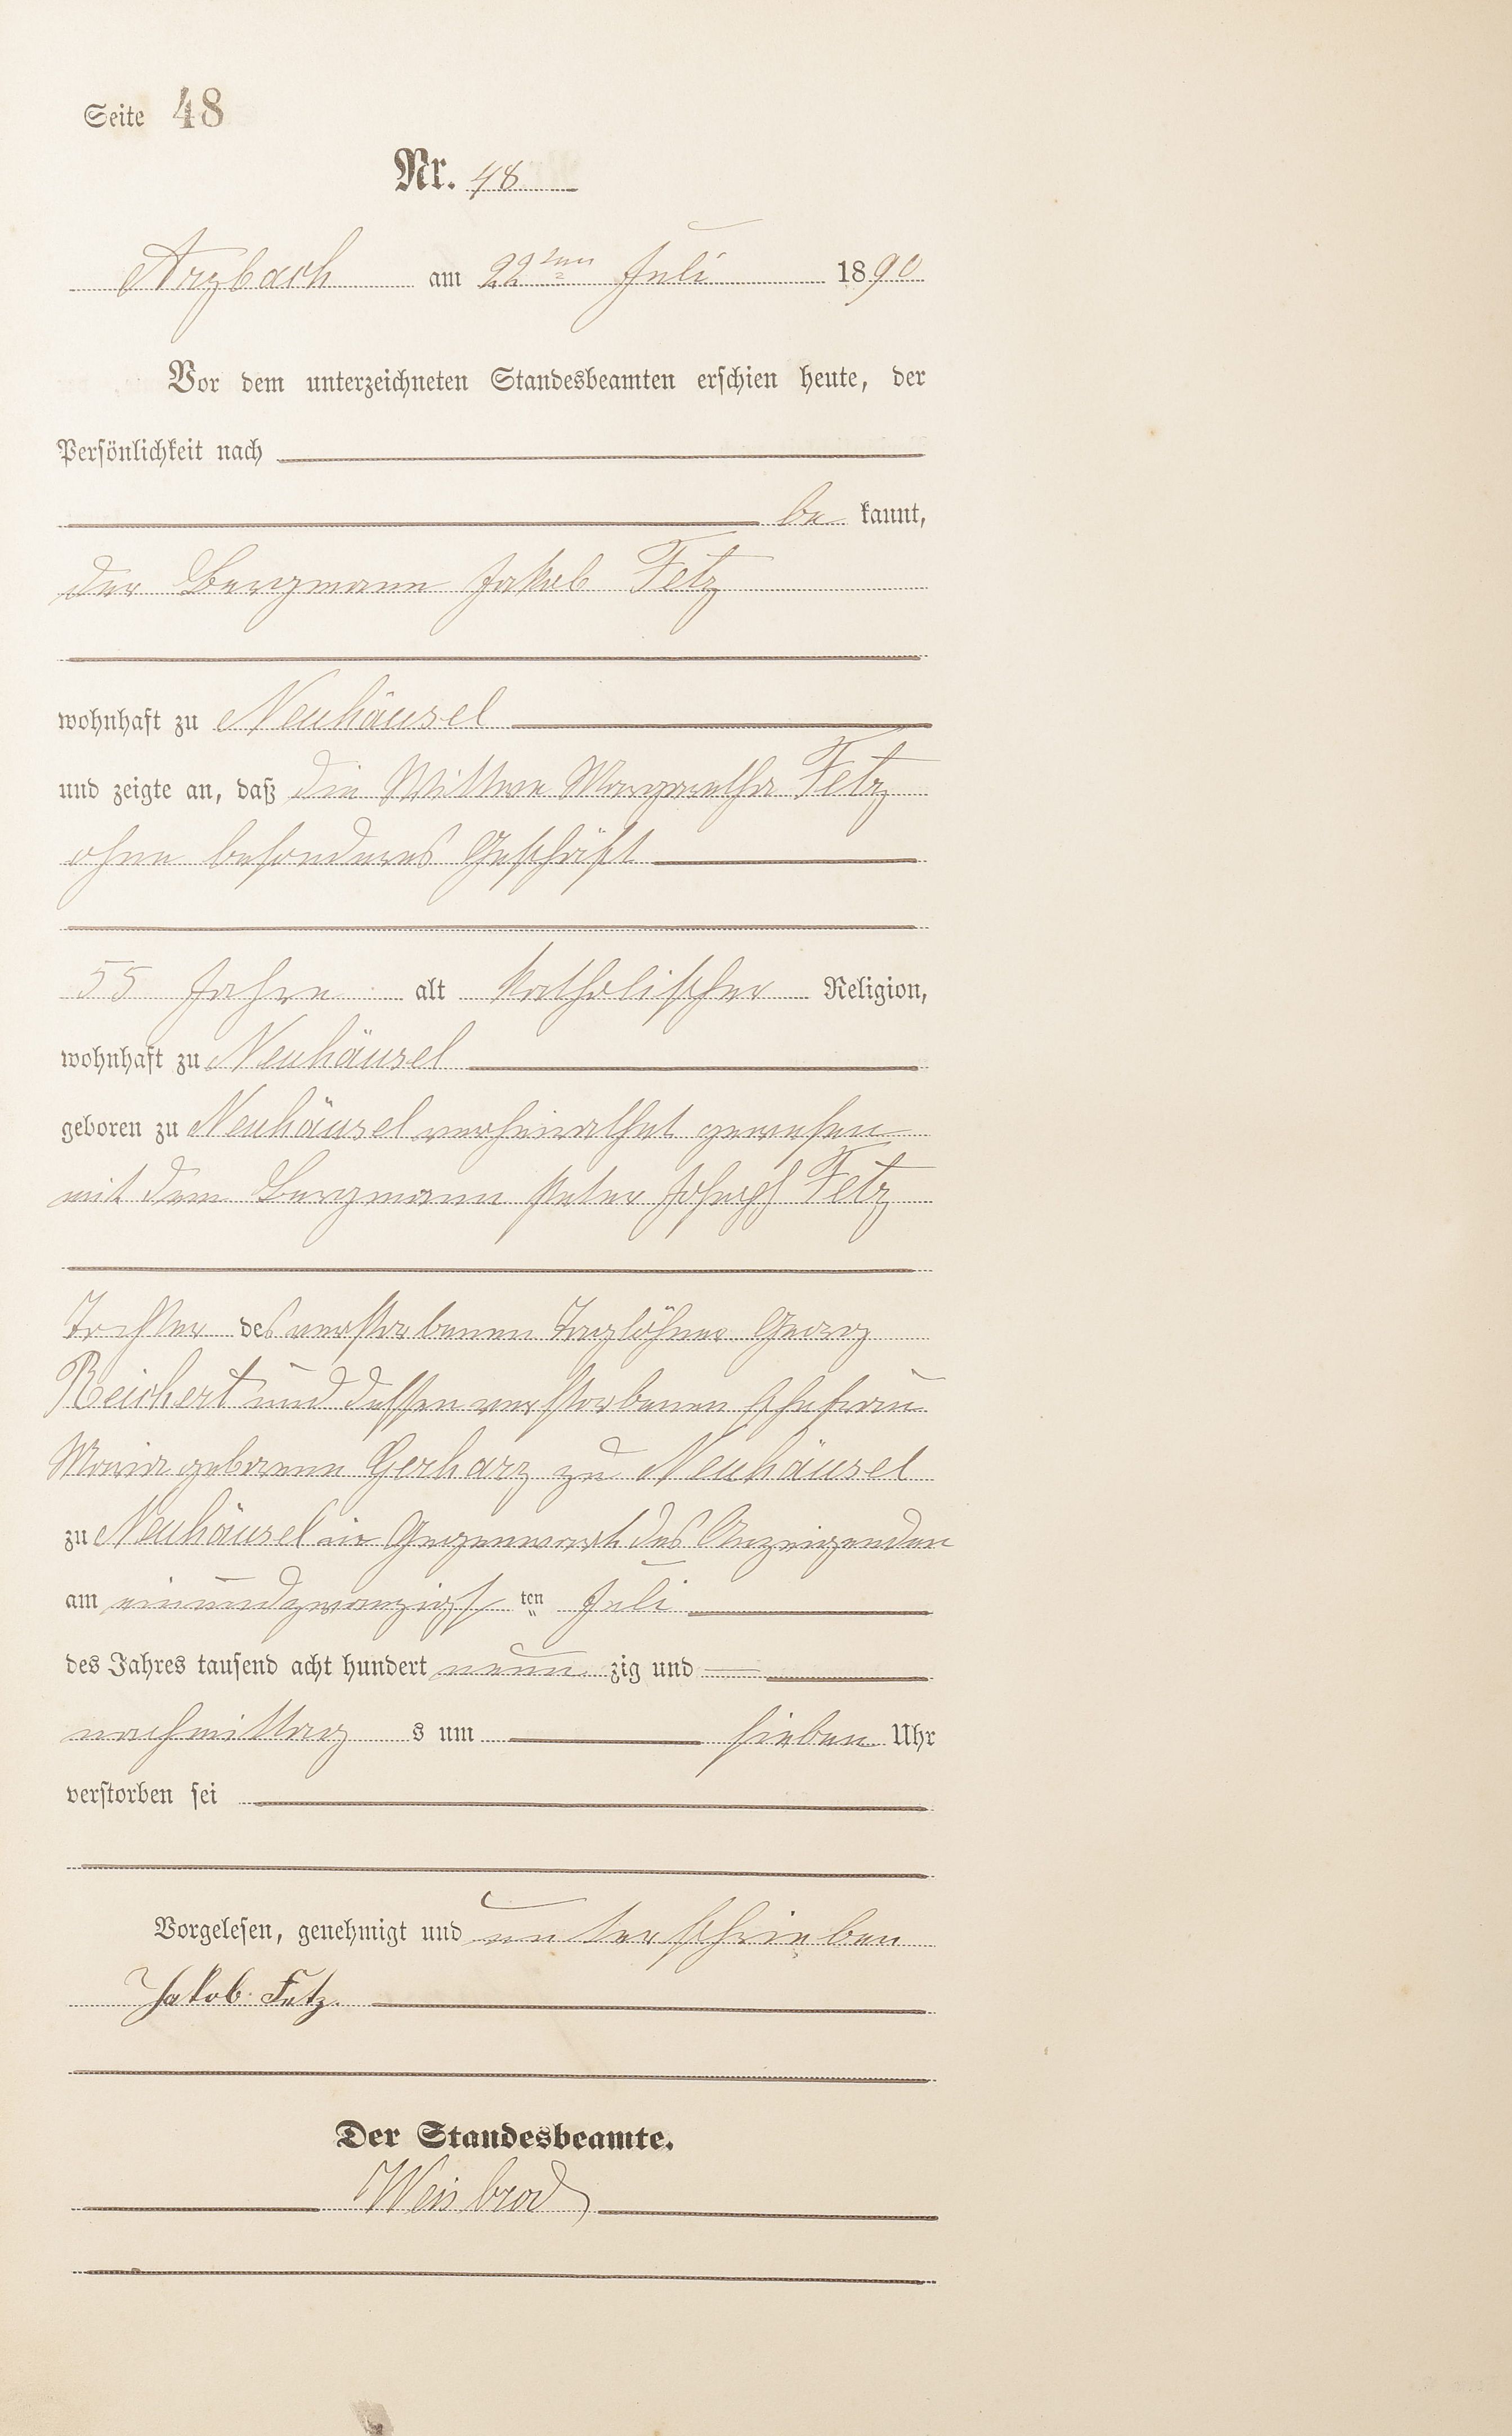 Seite 48
Nr. 48
Arzbach am 22ten Juli 1890
Vor dem unterzeichneten Standesbeamten erschien heute, der
Persönlichkeit nach
be kannt,
der Bergmann Jakob Fetz
wohnhaft zu Neuhäusel
und zeigte an, daß die Wittwe Margaretha Fetz
ohne besonderes Geschäft
55 Jahre alt katholischer Religion,
wohnhaft zu Neuhäusel
geboren zu Neuhäusel verheirathet gewesen
mit dem Bergmann Peter Joseph Fetz
Tochter des verstorbenen Taglöhner Georg
Reichert und dessen verstorbenen Ehefrau
Maria geborene Gerharz zu Neuhäusel
zu Neuhäusel in Gegenwart des Anzeigenden
am einundzwanzigsten Juli
des Jahres tausend acht hundert neunzig und
nachmittags um sieben Uhr
verstorben sei
Vorgelesen, genehmigt und unterschrieben
Jakob Fetz.
Der Standesbeamte.
Weisbrod